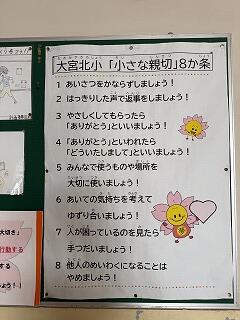 大宮北小「小さな親切」8か条
1 あいさつをかならずしましょう!
2 はっきりした声で返事をしましょう!
3 やさしくしてもらったら
「ありがとう」といいましょう!
4 「ありがとう」といわれたら
「どういたしまして」といいましょう!
5 みんなで使うものや場所を
大切に使いましょう!
6 あいての気持ちを考えて
ゆずり合いましょう!
7 人が困っているのを見たら
手つだいましょう!
8 他人のめいわくになることは
やめましょう!
大切さ」
行動する
する